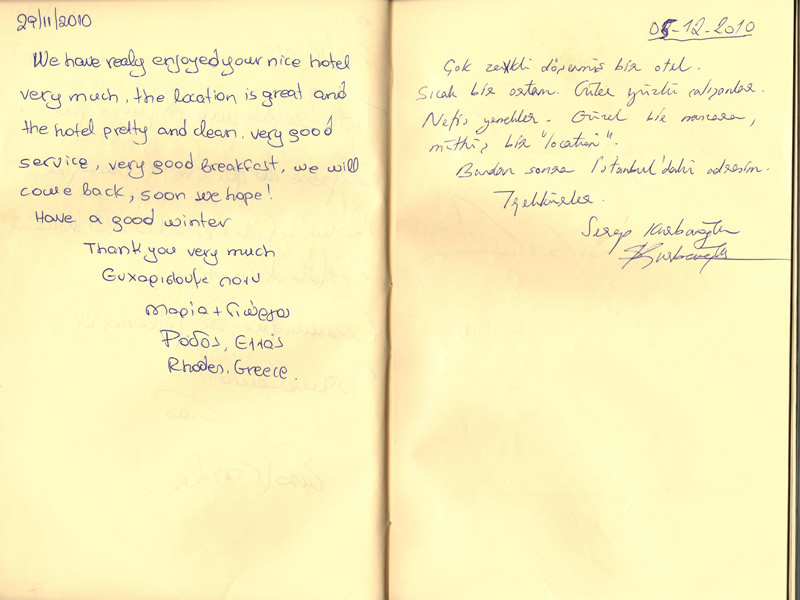 29/11/2010
We have realy enjoyed your nice hotel
very much, the location is great and
the hotel pretty and clean, very good
service, very good breakfast, we will
come back, soon we hope!
Have a good winter
Thank you very much
Ευχαριστουμε πολυ
Μαρία + Γιώργος
Ρόδος, Ελλάς
Rhodes, Greece.
05-12-2010
Çok zevkli döşenmiş bir otel.
Sıcak bir ortam. Güler yüzlü çalışanlar.
Nefis yemekler. Güzel bir manzara,
müthiş bir "location".
Bundan sonra İstanbul'daki adresim.
Teşekkürler.
Kurbanoğlu